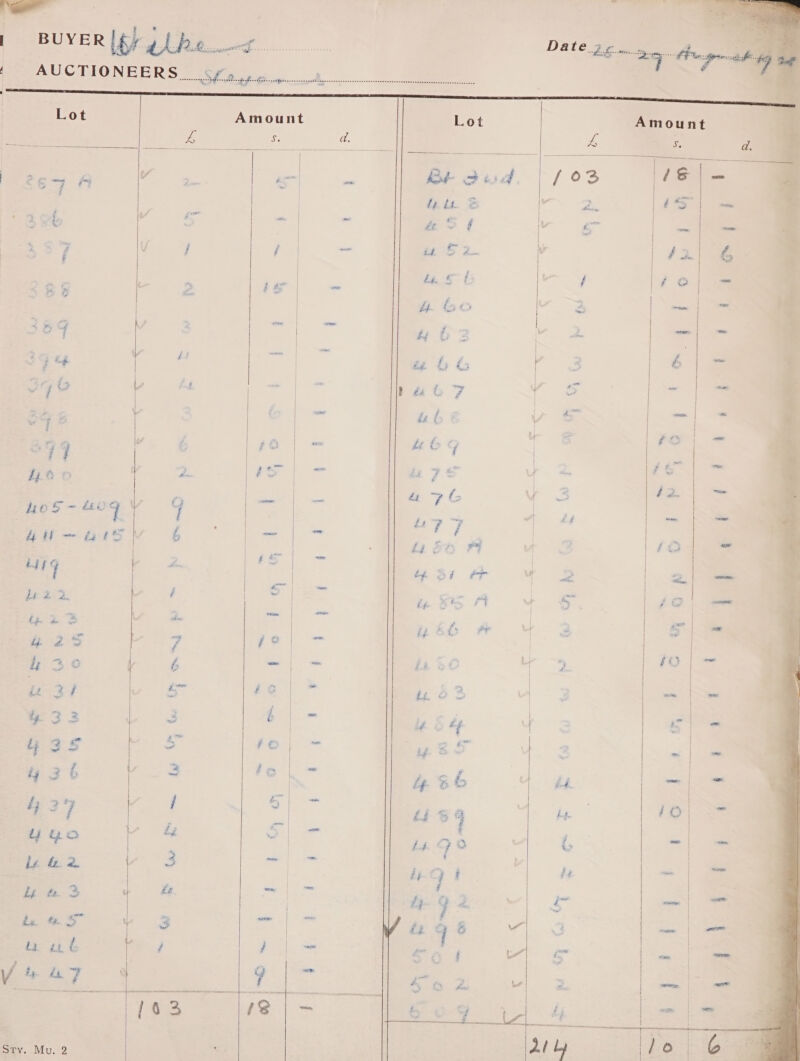 BUYER Wilkes
Date 28-29 August 1928
AUCTIONEERS Stevens
Lot Amount
£ s. d.
367 A ✓ 2 - 5 -
386 ✓ 5 - -
387 ✓ 1 1 -
388 ✓ 2 15 -
389 ✓ 3 - -
394 ✓ 4 - -
396 ✓ 4 - -
398 ✓ 3 6 -
399 ✓ 6 10 -
400 ✓ 2 15 -
405-409 ✓ 9 - -
411-415 ✓ 6 - -
419 ✓ 2 15 -
422 ✓ 1 5 -
423 ✓ 2 - -
425 ✓ 7 10 -
430 ✓ 6 - -
431 ✓ 5 10 -
433 ✓ 3 6 -
435 ✓ 5 10 -
436 ✓ 3 10 -
437 ✓ 1 5 -
440 ✓ 4 5 -
442 ✓ 3 - -
443 ✓ 4 - -
445 ✓ 3 - -
446 ✓ 1 1 -
✓ 447 9 -
103 18 -
Sty. Mu. 2
Lot Amount
£ s. d.
Bt Fwd. 103 18 -
448 ✓ 2 15 -
451 ✓ 5 - -
452 ✓ 12 6
456 ✓ 1 10 -
460 ✓ 3 - -
463 ✓ 2 - -
466 ✓ 3 6 -
467 ✓ 5 - -
468 ✓ 5 - -
469 ✓ 8 10 -
475 ✓ 2 15 -
476 ✓ 3 12 -
477 ✓ 4 - -
480 A ✓ 3 10 -
481 A ✓ 2 2 -
485 A ✓ 5. 10 -
486 A ✓ 3 5 -
480 ✓ 2 10 -
483 ✓ 3 - -
484 ✓ 3 5 -
485 ✓ 3 - -
486 ✓ 4 - -
489 4 10 -
490 ✓ 6 - -
491 ✓ 4 - -
492 5 - -
✓ 498 ✓ 3 - -
501 ✓ 5 - -
502 ✓ 2 - -
509 ✓ 4 - -
214 10 6